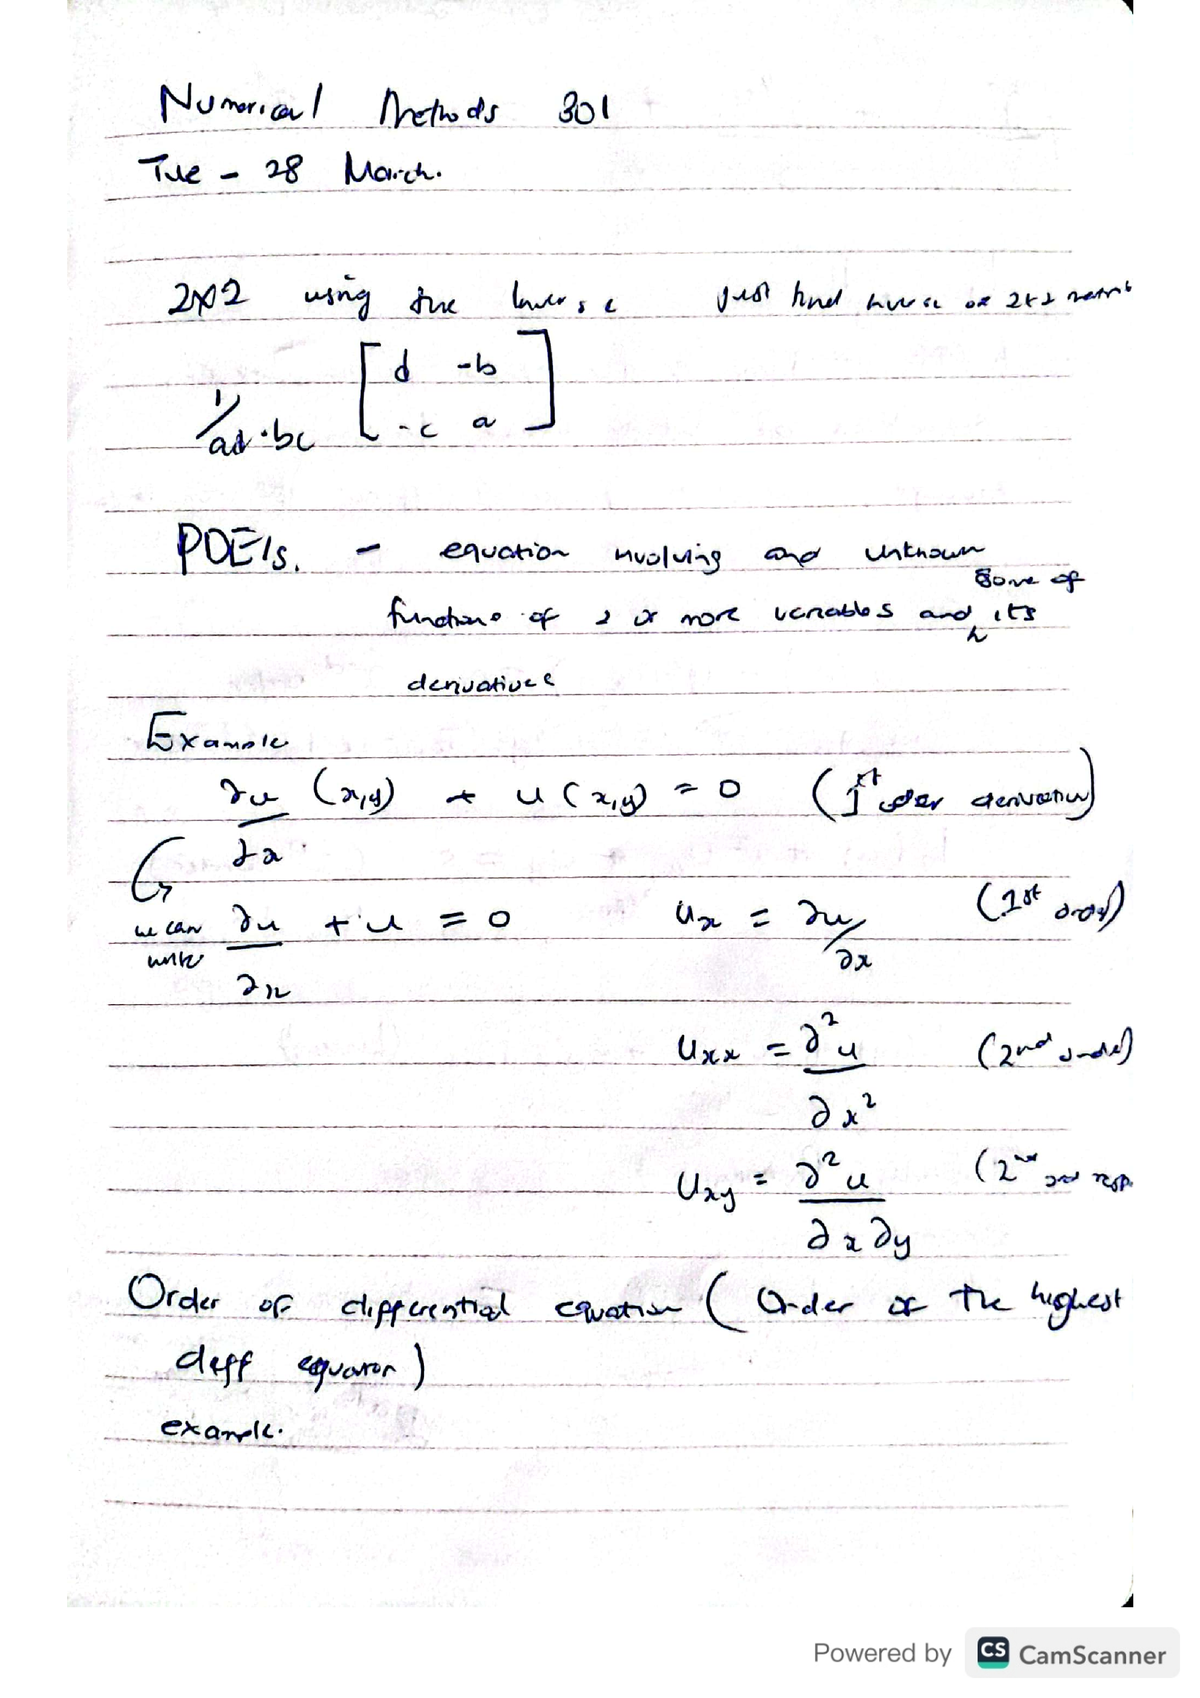 Numerical Methods 301
Tue - 28 March.
2x2 using the Inverse just find inverse of 2x2 matrix
1/ad-bc [ d -b
-c a ]
PDE's. - equation involving and unknown
some of
functions of 2 or more variables and its
derivatives
Example
∂u/∂x (x,y) + u(x,y) = 0 (1st order derivative)
we can write ∂u/∂x + u = 0 ux = ∂u/∂x (1st order)
uxx = ∂²u/∂x² (2nd order)
uxy = ∂²u/∂x∂y (2nd
Order of differential equation (Order of the highest
deff equation)
example.
Powered by CS CamScanner